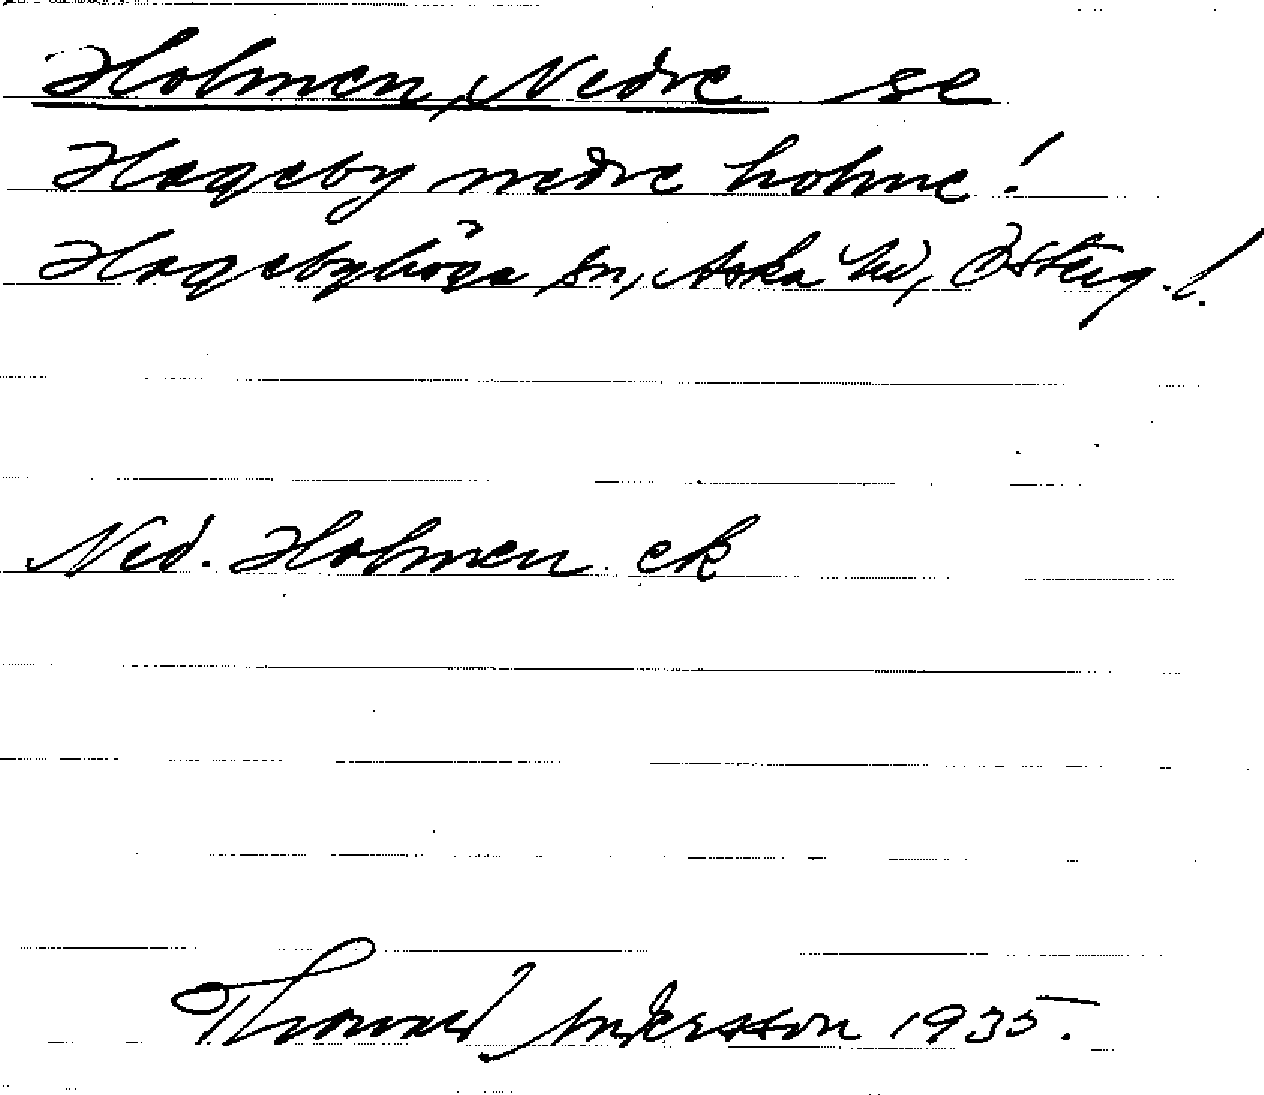 Holmen, Nedre se
Hageby nedre holme!
Hagebyhöga sn, Aska hd, Östg. l.
Ned. Holmen ek
Thorvald Andersson 1935.